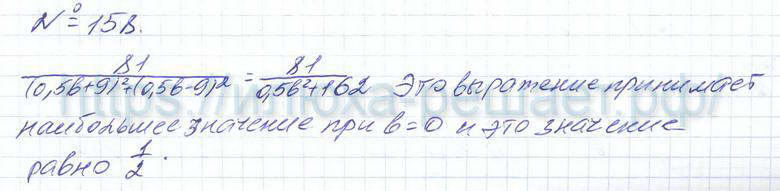 № 15В.
81/((0,5в+9)²+(0,5в-9)²) = 81/(0,5в²+162) Это выражение принимает
наибольшее значение при в=0 и это значение
равно 1/2.
https://илюха-решает.рф/